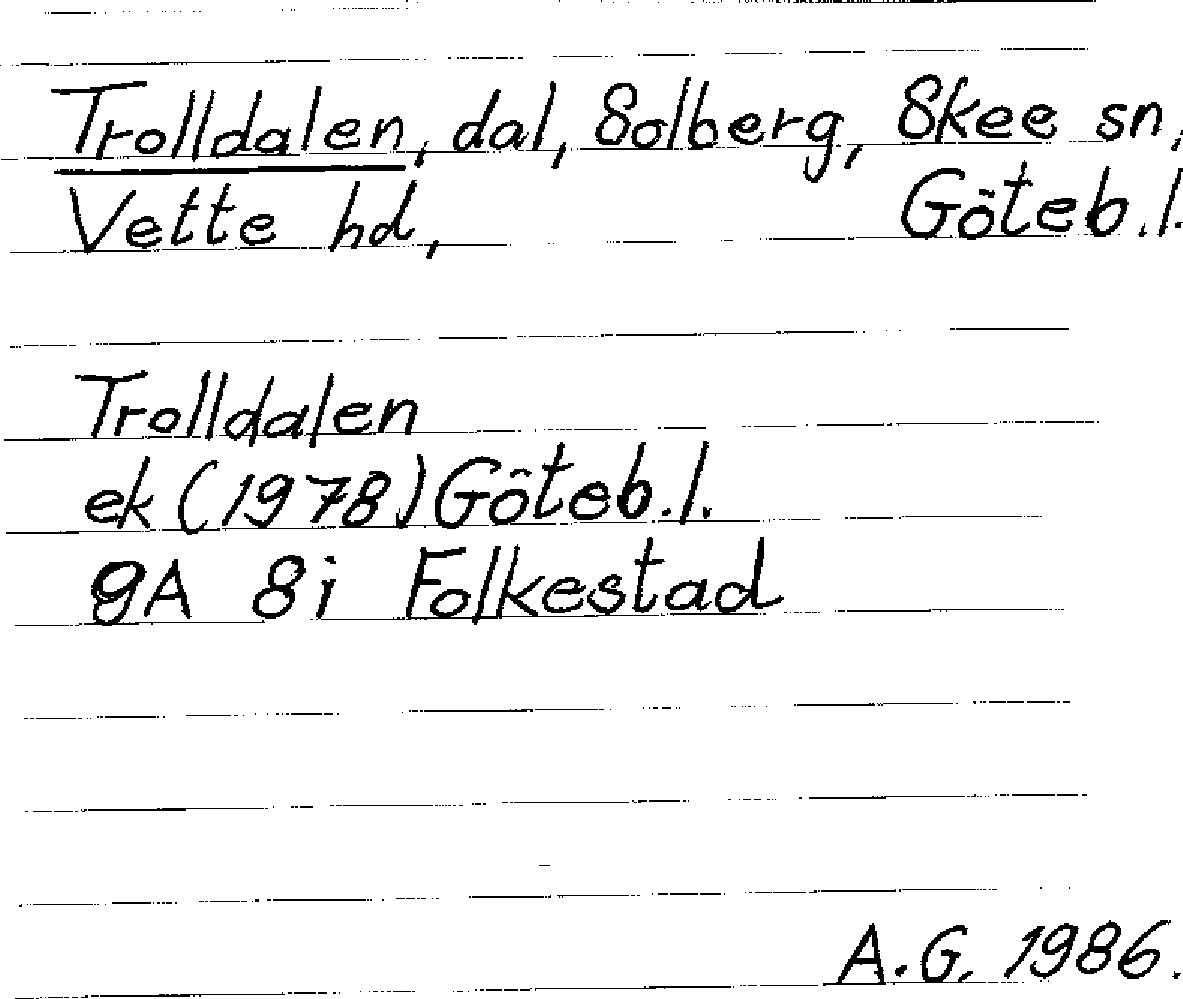 Trolldalen, dal, Solberg, Skee sn,
Vette hd, Göteb.l.
Trolldalen
ek (1978) Göteb.l.
9A 8i Folkestad
A.G. 1986.